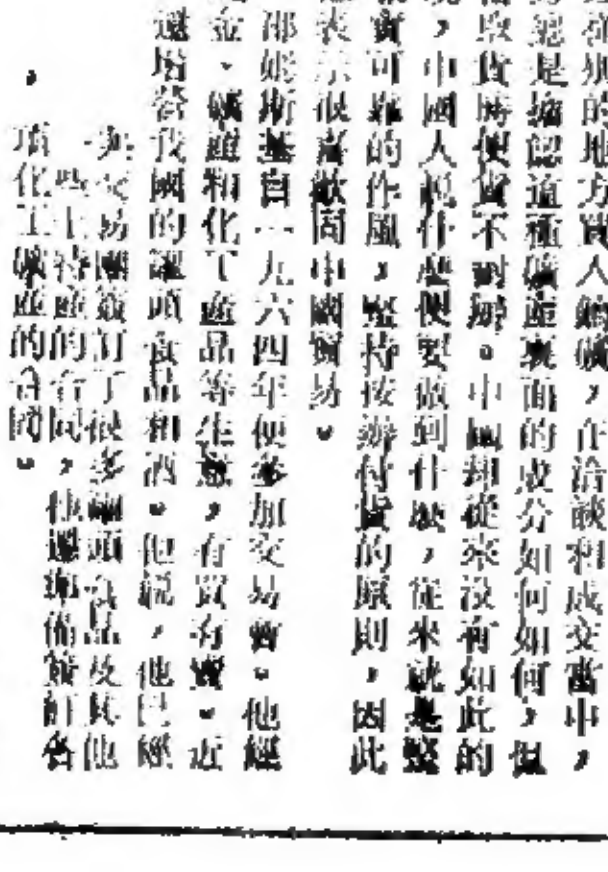 別的地方買人鎢礦，在洽談和成交當中，
總是確認這種礦產裏面的成分如何如何，但
取貨時便貨不對辦。中國却從來沒有如此的
，中國人說什麼便要做到什麼，從來就是堅
實可靠的作風，堅持按辦付貨的原則，因此
表示很喜歡同中國貿易。
邵妮斯基自一九六四年便參加交易會。他經
金、礦產和化工產品等生意，有買有賣。近
還增營我國的罐頭食品和酒。他說，他已經
與交易團簽訂了很多罐頭食品及其他
一些土特產的合同，他還準備簽訂各
項化工礦產的合同。